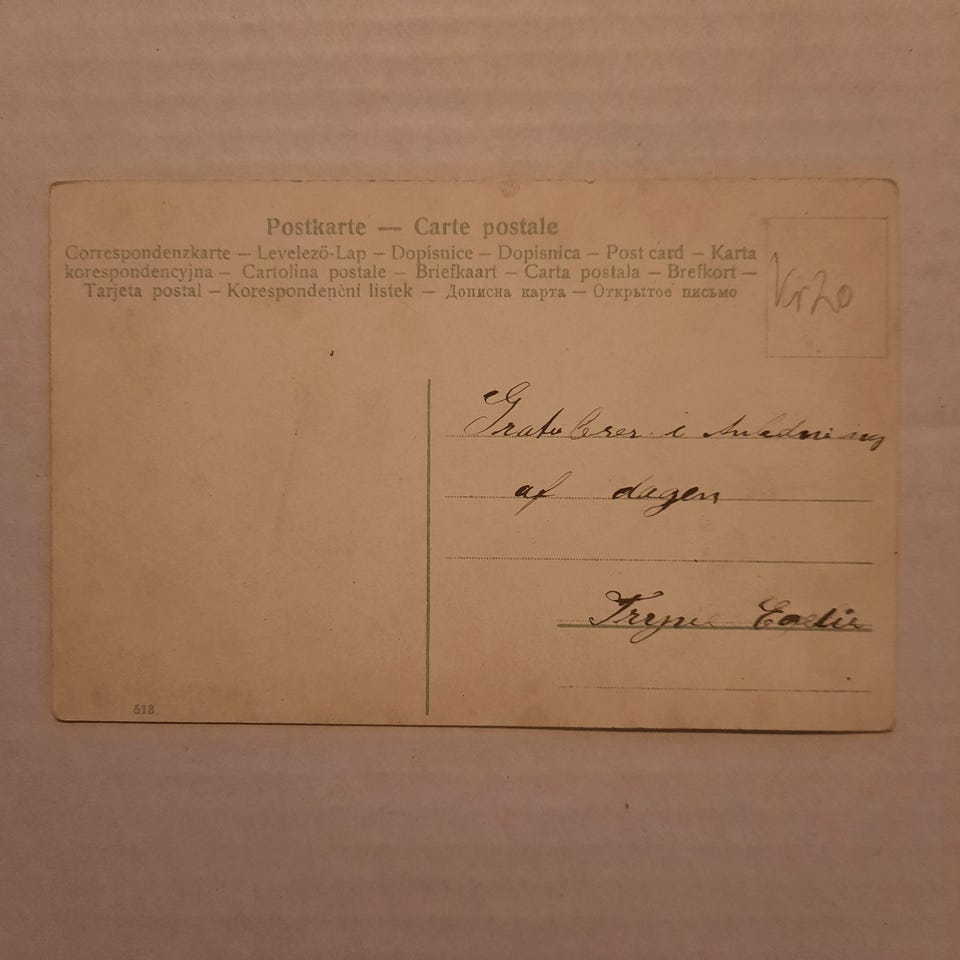 Postkarte — Carte postale
Correspondenzkarte – Levelező-Lap – Dopisnice – Dopisnica – Post card – Karta
korespondencyjna – Cartolina postale – Briefkaart – Carta postala – Brefkort –
Tarjeta postal – Korespondenčni listek – Дописна карта – Открытое письмо
Kr 20
Gratulerer i Anledning
af dagen
513.